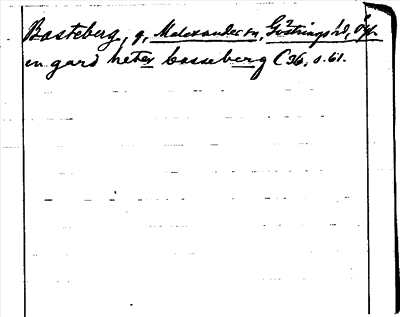 Basteberg, g, Malexander sn, Göstrings hd, Ög.
en gard heter basseberg C 36, s. 61.